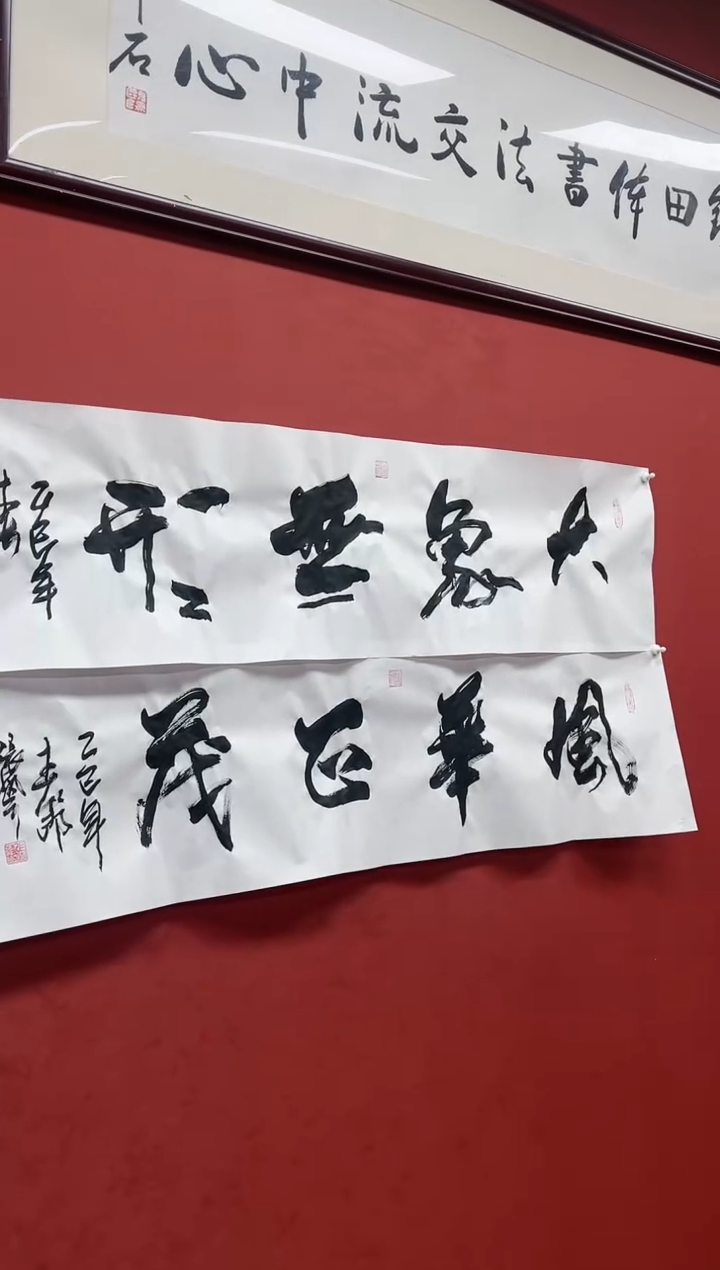 田体書法交流中心
石
大象無形
乙巳年
風華正茂
乙巳年